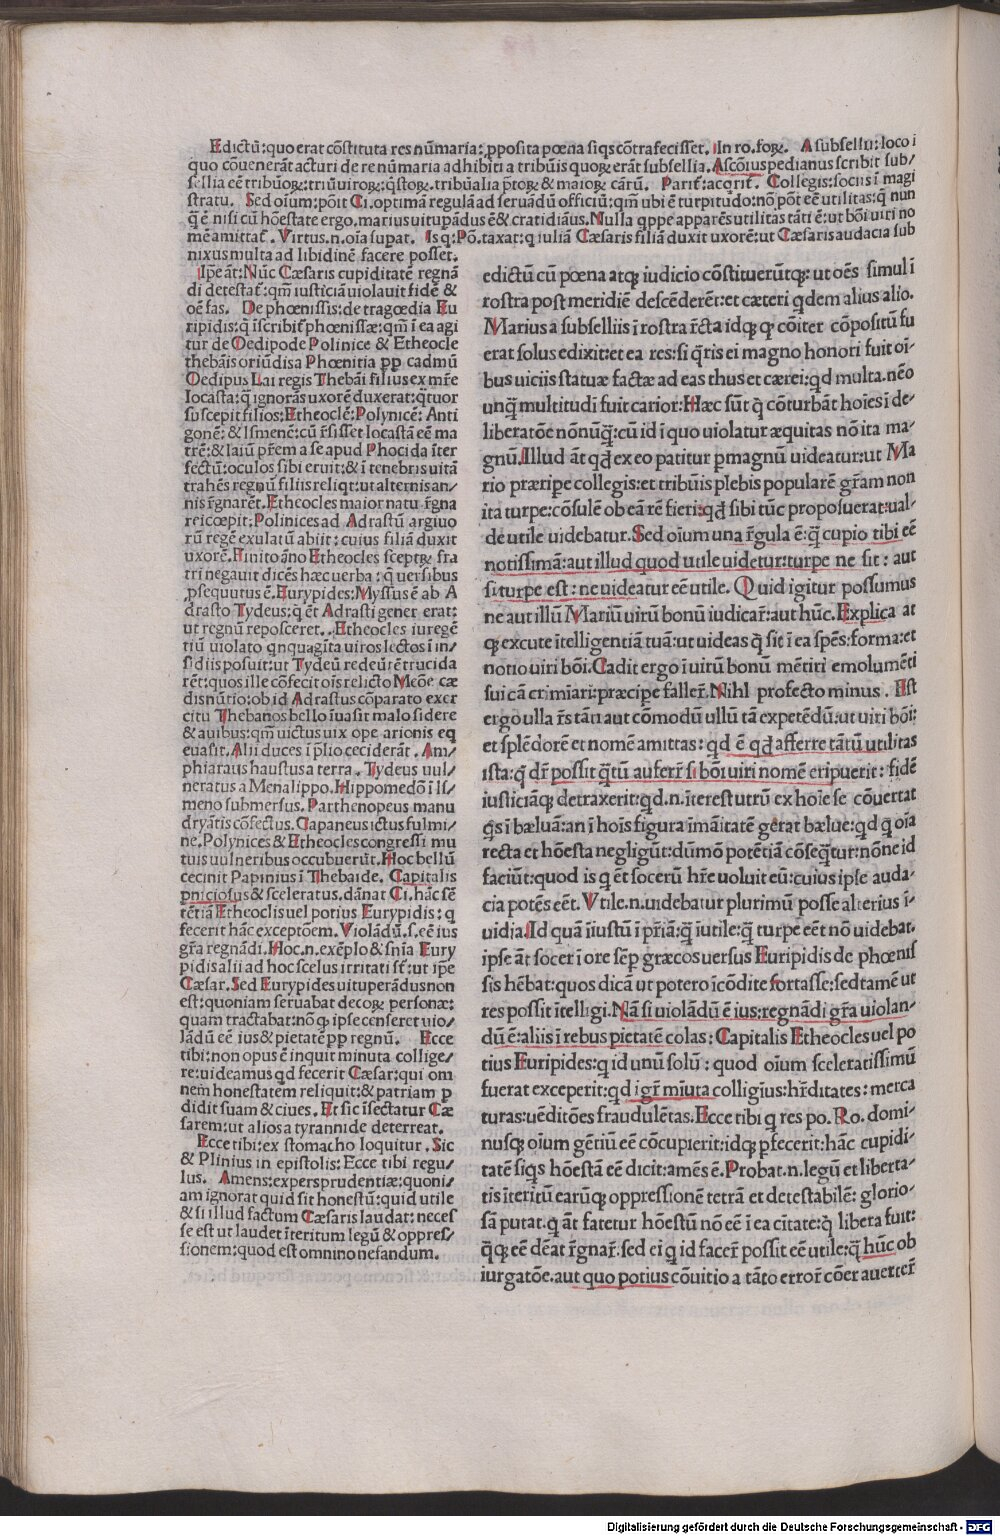 Edictū: quo erat cōstituta res nūmaria: ꝓposita pœna siqs cōtrafecisset. In ro. foꝝ. A subselliı: loco i
quo cōuenerāt acturi de re nūmaria adhibiti a tribūis quoꝝ erāt subsellia. Ascōius pedianus scribit sub/
sellia eē tribūoꝝ: triūuiroꝝ: q̄stoꝝ. tribūalia p̄toꝝ & maioꝝ cārū. Parit̄: ac q̄rit̄. Collegis: sociis ī magi
stratu. Sed oīum: pōit Ci. optimā regulā ad seruādū officiū: qm̄ ubi ē turpitudo: nō pōt eē utilitas: q̄ nun
q̄ ē nisi cū hōestate ergo. marius uitupādus ē & cratidiāus. Nulla q̄ppe apparēs utilitas tāti ē: ut bōi uiri no
mē amittat̄. Virtus. n. oīa supat. Is q: Pō. taxat: q iuliā Cæsaris filiā duxit uxorē: ut Cæsaris audacia sub
nixus multa ad libidinē facere posset.
Ipe āt: Nūc Cæsaris cupiditatē regnā
di detestat̄: qm̄ iusticiā uiolauit fidē &
oē fas. De phœnissis: de tragœdia Eu
ripidis: q̄ īscribit̄ phœnissæ: qm̄ ī ea agi
tur de Oedipode Polinice & Etheocle
thebāis oriūdis a Phœnitia ꝓp cadmū
Oedipus Lai regis Thebāi filius ex mr̄e
Iocasta: q̄ ignorās uxorē duxerat: q̄tuor
suscepit filios: Etheoclē: Polynicē: Anti
gonē: & Ismenē: cū r̄sisset Iocastā eē ma
trē: & laiū pr̄em a se apud Phocida īter
fectū: oculos sibi eruit: & ī tenebris uitā
trahēs regnū filiis reliq̄t: ut alternis an/
nis r̄gnarēt. Etheocles maior natu r̄gna
re icœpit: Polinices ad Adrastū argiuo
rū regē exulatū abiit: cuius filiā duxit
uxorē. Finito āno Etheocles sceptꝝ fra
tri negauit dicēs hæc uerba: q̄ uersibus
ꝓsequutus ē. Eurypides: Myssus ē ab A
drasto Tydeus: q̄ ēt Adrasti gener erat:
ut regnū reposceret. Etheocles iure gē
tiū uiolato q̄nquagīta uiros lectos ī in/
sidiis posuit: ut Tydeū redeūrē trucida
rēt: quos ille cōfecit oīs relicto Meōe cæ
dis nūtio: ob id Adrastus cōparato exer
citu Thebanos bello īuasit malo sidere
& auibus: qm̄ uictus uix ope arionis eq
euasit. Alii duces ī p̄lio ceciderāt. Am/
phiaraus haustus a terra. Tydeus uul/
neratus a Menalippo. Hippomedō ī Is/
meno submersus. Parthenopeus manu
dryātis cōfectus. Capaneus ictus fulmi/
ne. Polynices & Etheocles congressi mu
tuis uulneribus occubuerūt. Hoc bellū
cecinit Papinius ī Thebaide. Capitalis
pniciosus & sceleratus. dānat Ci. hāc sē
tētiā Etheoclis uel potius Eurypidis: q
fecerit hāc exceptōem. Violādū. s. eē ius
gr̄a regnādi. Hoc. n. exēplo & sn̄ia Eury
pidis alii ad hoc scelus irritati st̄: ut ip̄e
Cæsar. Sed Eurypides uituperādus non
est: quoniam seruabat decoꝝ personæ:
quam tractabat: nō ꝙ ipse censeret uio/
lādū eē ius & pietatē ꝓp regnū. Ecce
tibi: non opus ē inquit minuta collige/
re: uideamus qd fecerit Cæsar: qui om
nem honestatem reliquit: & patriam p
didit suam & ciues. Et sic īsectatur Cæ
sarem: ut alios a tyrannide deterreat.
Ecce tibi: ex stomacho loquitur. Sic
& Plinius in epistolis: Ecce tibi regu/
lus. Amens: expers prudentiæ: quoni/
am ignorat quid sit honestū: quid utile
& si illud factum Cæsaris laudat: neces
se est ut laudet īteritum legū & oppres/
sionem: quod est omnino nefandum.
edictū cū pœna atq; iudicio cōstituerūtq;: ut oēs simul ī
rostra post meridiē descēderēt: et cæteri q̄dem alius alio.
Marius a subselliis ī rostra r̄cta idq; qꝫ cōiter cōpositū fu
erat solus edixit: et ea res: si q̄ris ei magno honori fuit oī/
bus uiciis statuæ factæ ad eas thus et cærei: qd multa. nēo
unq̄ multitudi fuit carior: Hæc sūt q̄ cōturbāt hoīes ī de/
liberatōe nōnūq̄: cū id ī quo uiolatur æquitas nō ita ma/
gnū. Illud āt qd ex eo patitur pmagnū uideatur: ut Ma
rio præripe collegis: et tribūis plebis popularē gr̄am non
ita turpe: cōsulē ob eā rē fieri: qd sibi tūc proposuerat: ual/
de utile uidebatur. Sed oīum una r̄gula ē: q̄ cupio tibi eē
notissimā: aut illud quod utile uidetur: turpe ne sit: aut
si turpe est: ne uideatur eē utile. Quid igitur possumus
ne aut illū Mariū uirū bonū iudicar̄: aut hūc. Explica at
q; excute ītelligentiā tuā: ut uideas q̄ sit ī ea spēs: forma: et
notio uiri bōi. Cadit ergo ī uirū bonū mētiri emolumēti
sui cā crimiari: præcipe faller̄. Nihl profecto minus. Est
ergo ulla r̄s tāti aut cōmodū ullū tā expetēdū: ut uiri bōi:
et splēdorē et nomē amittas: qd ē qd afferre tātū utilitas
ista: q̄ dr̄ possit q̄tū auferr̄ si bōi uiri nomē eripuerit: fidē
iusticiāq; detraxerit: qd. n. īterest utrū ex hoīe se cōuertat
q̄s ī bæluā: an ī hoīs figura īmāitatē gerat bælue: qd q oīa
recta et hōesta negligūt: dūmō potētiā cōseq̄tur: nōne id
faciūt: quod is q ēt socerū hr̄e uoluit eū: cuius ipse auda/
cia potēs eēt. Vtile. n. uidebatur plurimū posse alterius ī/
uidia. Id quā īiustū ī pr̄iā: q̄ iutile: q̄ turpe eēt nō uidebat.
ipse āt socer ī ore sēp græcos uersus Euripidis de phœnis
sis hēbat: quos dicā ut potero īcōdite fortasse: sed tamē ut
res possit ītelligi. Nā si uiolādū ē ius: regnādi gr̄a uiolan/
dū ē: aliis ī rebus pietatē colas: Capitalis Etheocles uel po
tius Euripides: q id unū solū: quod oīum sceleratissimū
fuerat exceperit: qd igr̄ mīuta colligīus: hr̄ditates: merca
turas: uēditōes fraudulētas. Ecce tibi q res po. Ro. domi/
nusq; oīum gētiū eē cōcupierit: idq; pfecerit: hāc cupidi/
tatē siqs hōestā eē dicit: amēs ē. Probat. n. legū et liberta/
tis īteritū earūq; oppressionē tetrā et detestabilē: glorio/
sā putat. q āt fatetur hōestū nō eē ī ea citate: q̄ libera fuit:
q̄q; eē dēat r̄gnar̄. sed ei q id facer̄ possit eē utile: q̄ hūc ob
iurgatōe. aut quo potius cōuitio a tāto error̄ cōer auerter̄
Digitalisierung gefördert durch die Deutsche Forschungsgemeinschaft - DFG